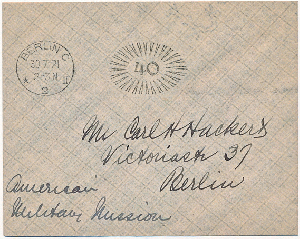 BERLIN C
2
40
Mr Carl H Huckert
Victoriastr 37
Berlin
American
Military Mission